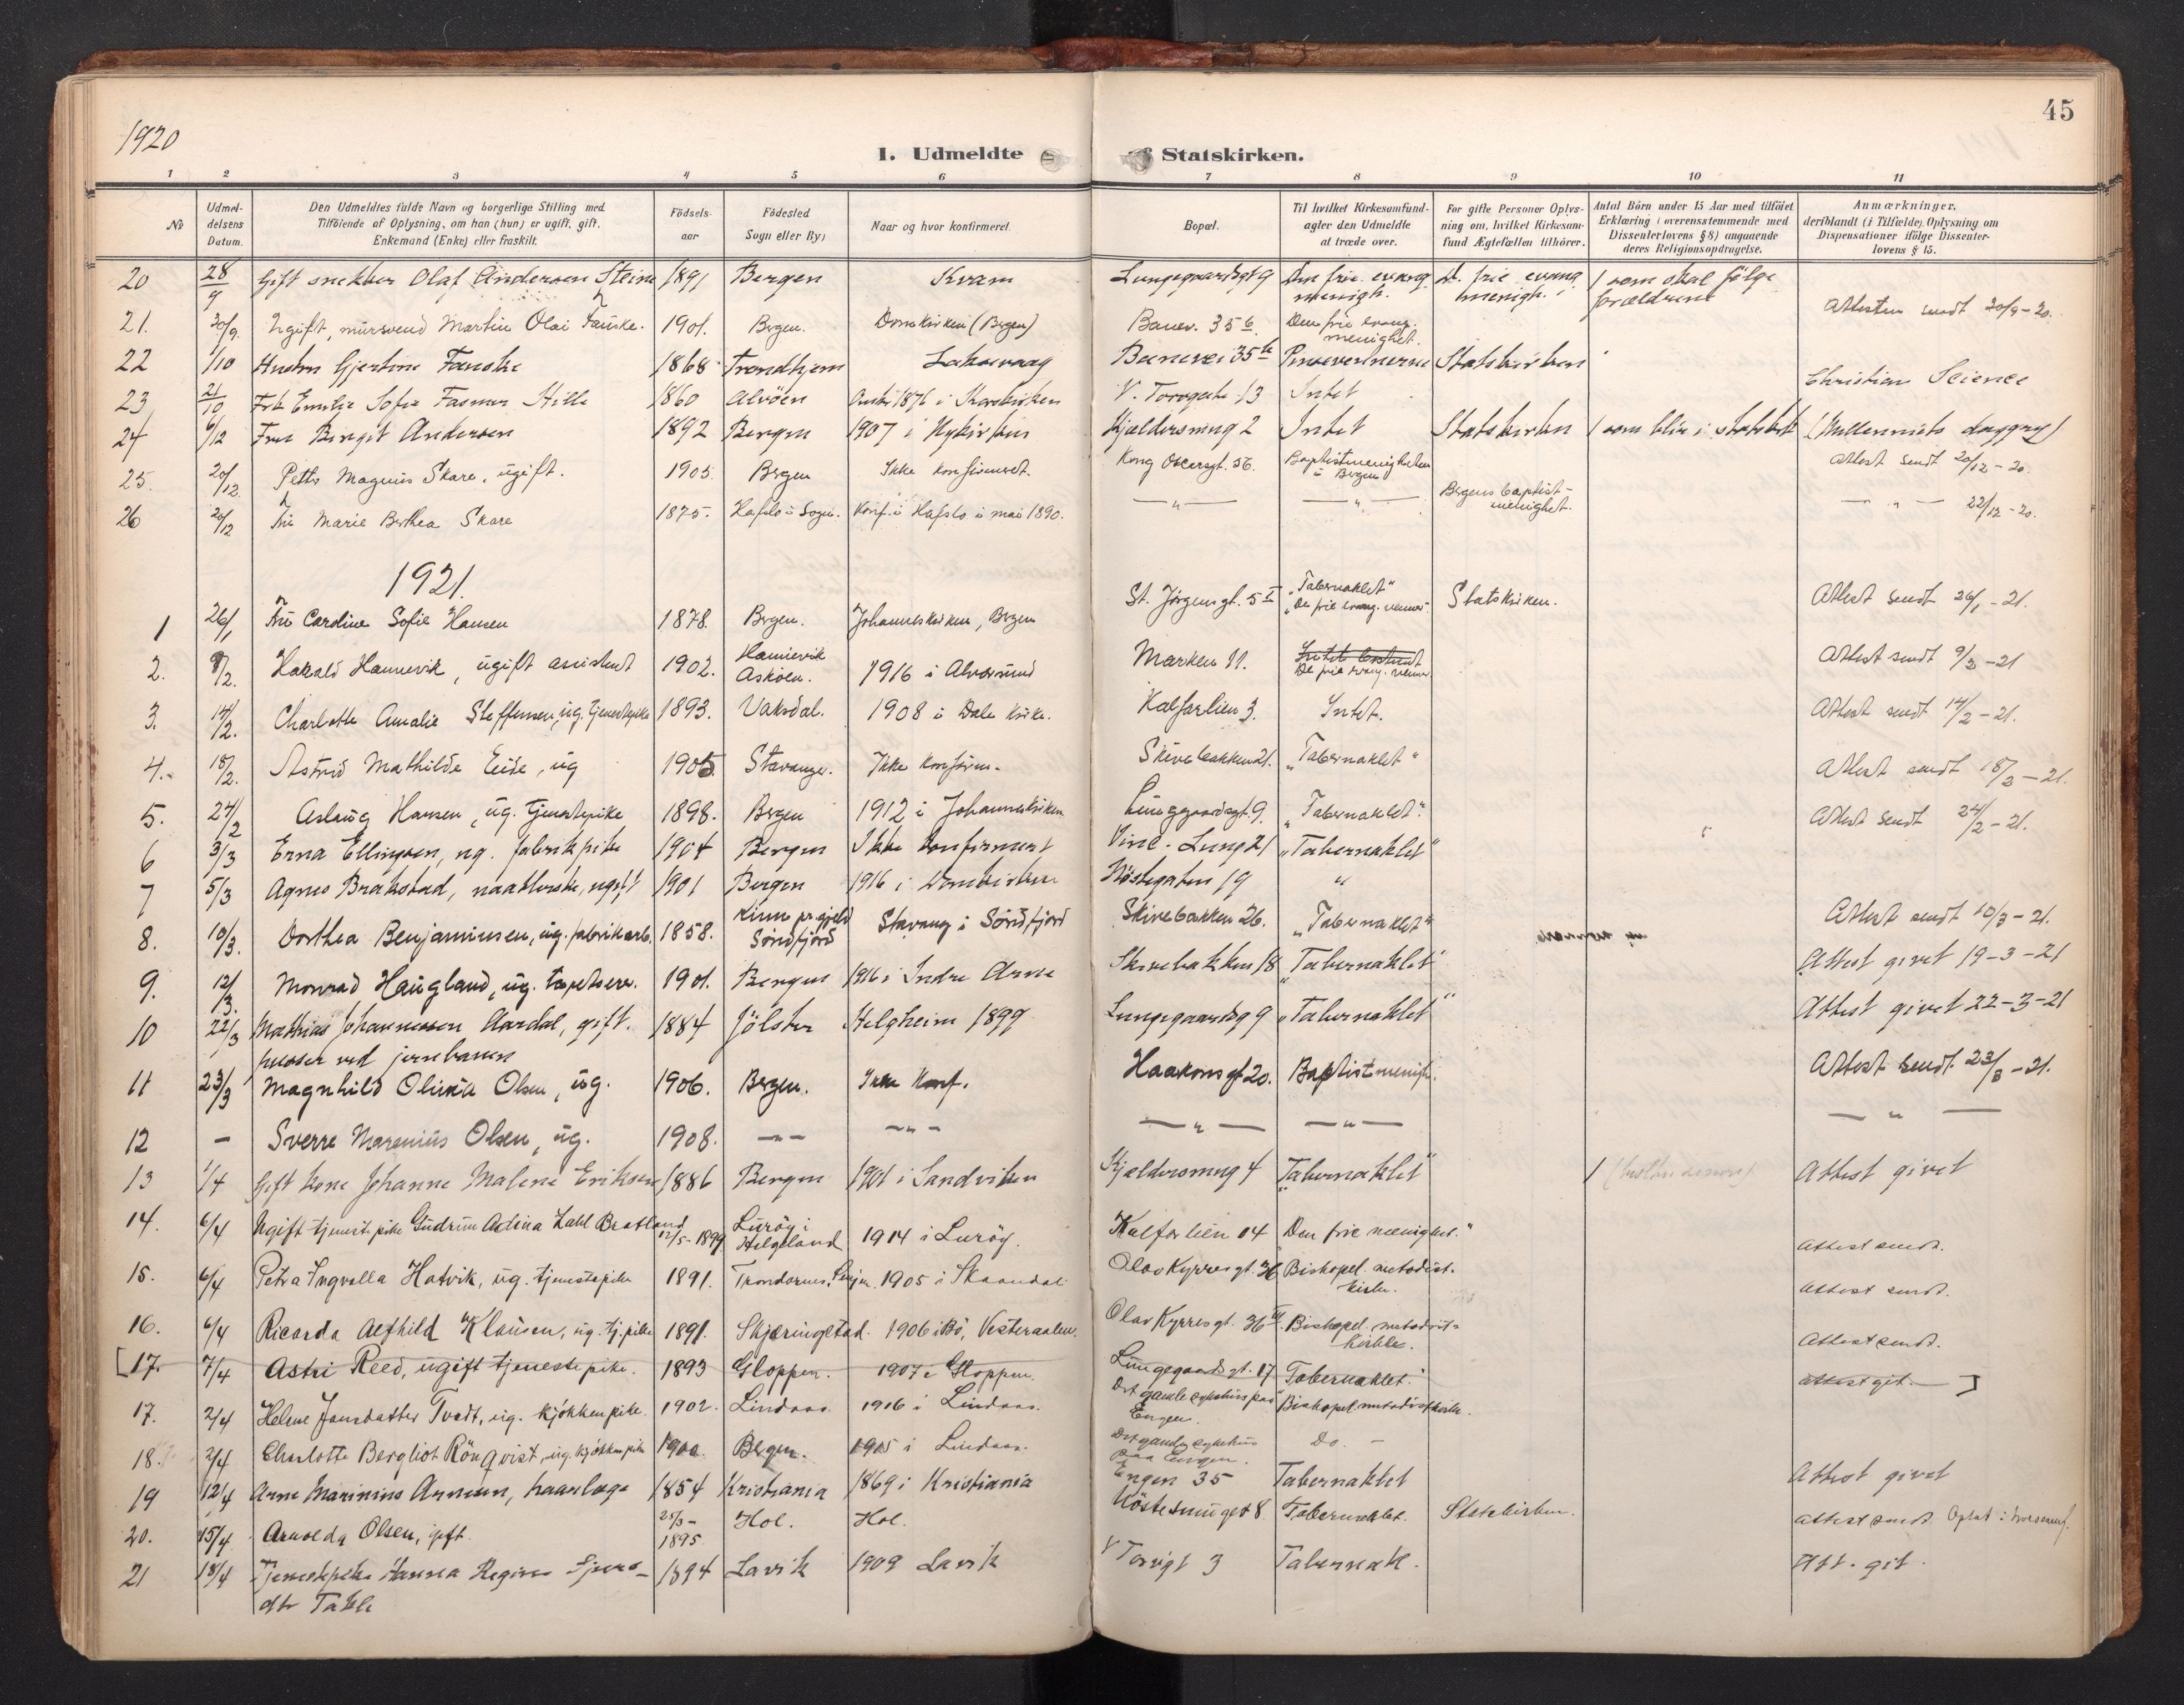 45
1920
I. Udmeldte af Statskirken.
1 2 3 4 5 6 7 8 9 10 11
No
Udmeldelsens Datum.
Den Udmeldtes fulde Navn og borgerlige Stilling med Tilföiende af Oplysning, om han (hun) er ugift, gift. Enkemand (Enke) eller fraskilt.
Födsels-aar
Födested Sogn eller By)
Naar og hvor konfirmeret.
Bopæl.
Til hvilket Kirkesamfund-agter den Udmeldte at træde over.
For gifte Personer Oplysning om, hvilket Kirkesamfund Ægtefællen tilhörer.
Antal Börn under 15 Aar med tilföiet Erklæring (overensstemmende med Dissenterlovens § 8) angaaende deres Religionsopdragelse.
Anmærkninger, deriblandt (i Tilfælde) Oplysning om Dispensationer ifölge Dissenter-lovens § 15.
20 28/9 Gift snekker Olaf Andersen Steine 1891 Bergen Kvam Lungegaardsgt 9 Den frie evang. menigh. d. frie evang. menigh. 1 som skal fölge forældrene
21. 30/9. Ugift, mursvend Martin Olai Fauske. 1901. Bergen. Domkirken (Bergen) Banev. 35 b. Den frie evang. menighet. Attesten sendt 30/9-20.
22 1/10 Hustru Gjertine Fauske 1868 Trondhjem Laksevaag Banevei 35 b Pinsevennerne Statskirken
23 21/10 Frk Emilie Sofie Fasmer Hille 1860 Alvöen 1876 i Korskirken V. Torvgate 13 Intet Christian Science
24 6/12 Fru Birgit Andersen 1892 Bergen 1907 i Nykirken Kjeldersmug 2 Intet Statskirken 1 som blir i statskirk (Millenniets daggry)
25. 20/12. Petter Magnus Skare, ugift. 1905. Bergen Ikke konfirmert. Kong Oscarsgt. 56. Baptistmenigheten i Bergen Attest sendt 20/12-20.
26 20/12 Fru Marie Berthea Skare 1875. Hafslo i Sogn. Konf. i Hafslo i mai 1890. — " — — " — Bergens baptist-menighet. — " — 22/12-20.
1921.
1 26/1 Fru Caroline Sofie Hansen 1878. Bergen. Johanneskirken, Bergen St. Jörgensgt. 5 I "Tabernaklet" "De frie evang. venner" Statskirken. Attest sendt 26/1-21.
2. 9/2. Harald Hannevik, ugift assistent 1902. Hanevik Asköen. 1916 i Alversund Marken 11. Intet bestemt De frie evang. venner. Attest sendt 9/2-21
3. 14/2. Charlotte Amalie Steffensen, ug. tjenestepike 1893. Vaksdal. 1908 i Dale kirke. Kalfarlien 3. Intet. Attest sendt 14/2-21.
4. 18/2. Astrid Mathilde Eide, ug 1905. Stavanger. Ikke konfirm. Skivebakken 21. "Tabernaklet" Attest sendt 18/2-21.
5. 24/2 Aslaug Hansen, ug. tjenestepike 1898. Bergen 1912 i Johanneskirken Lunggaardsgt. 9. "Tabernaklet". Attest sendt 24/2-21.
6 3/3 Erna Ellingsen, ug. fabrikpike 1904 Bergen Ikke konfirmert Vinc. Lung 21 "Tabernaklet"
7 5/3 Agnes Brakstad, naatlerske, ugift 1901 Bergen 1916 i Domkirken Nöstegaten 19 "
8. 10/3. Dorthea Benjaminsen, ug. fabrikarb. 1858. Kinn pr.gjeld Söndfjord Stavang i Söndfjord Skivebakken 26. "Tabernaklet" Attest sendt 10/3-21.
9. 12/3. Monrad Haugland, ug. tapetserer. 1901. Bergen 1916 i Indre Arna Skivebakken 18 "Tabernaklet" Attest givet 19-3-21
10 22/3 Mathias Johannessen Aardal, gift. pusser ved jernbanen 1884 Jölster Helgheim 1899 Lungegaardsg 9 "Tabernaklet" Attest givet 22-3-21
11 23/3 Magnhild Olivia Olsen, ug. 1906. Bergen. Ikke konf. Haakonsgt 20. Baptistmenigh. Attest sendt 23/3-21.
12 — Sverre Marenius Olsen, ug. 1908. — " — — " — — " — — " — — " —
13 1/4 Gift kone Johanne Malene Eriksen 1886 Bergen 1901 i Sandviken Kjeldersmug 4 "Tabernaklet" 1 Attest givet
14. 6/4 Ugift tjenestepike Gudrun Adina Zahl Bratland 12/5-1899 Luröy i Helgeland 1914 i Luröy. Kalfarlien 14 Den frie menighet." Attest sendt.
15. 6/4 Petra Ingvella Hatvik, ug. tjenestepike 1891. Trondarnes, Senjen. 1905 i Skaandal Olav Kyrresgt. 36 Biskopel. metodist. kirke. Attest sendt.
16. 6/4 Ricarda Alfhild Klausen, ug. tj.pike 1891. Skjæringstad. 1906 i Bö, Vesteraalen. Olav Kyrresgt. 36 III Biskopel. metodist-kirke. Attest sendt.
[17. 7/4 Astri Reed, ugift tjenestepike. 1893 Gloppen. 1907 i Gloppen. Lungegaardsgt. 17 Tabernaklet. attest git.]
17. 2/4 Helene Jonsdatter Tvedt, ug. kjökkenpike. 1902. Lindaas. 1916 i Lindaas. Det gamle sykehus paa Engen. Biskopel. metodistkirke.
18. 2/4 Charlotte Bergliot Rönqvist, ug. kjökkenpike 1900. Bergen. 1915 i Lindaas. Det gamle sykehus paa Engen. Do. —
19 12/4 Arne Marinius Arnesen, haandlæge 1854 Kristiania 1869 i Kristiania Engen 35 Tabernaklet Attest givet
20. 15/4 Arnolda Olsen, gift. 25/3-1895 Hol. Hol. Nöstesmuget 8. Tabernaklet. Statskirken. Attest sendt.
21 18/4 Tjenestepike Hanna Regine dtr Takle 1894 Lavik 1909 Lavik V Torvgt 3 Tabernakl. Att. git.